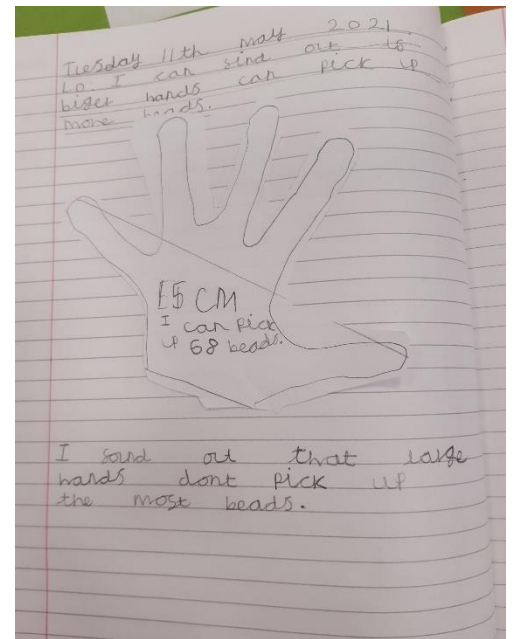 Tuesday 11th may 2021
LO: I can find out if
biger hands can pick up
more
15 CM
I can pick
up 68 beads.
I found out that large
hands dont pick up
the most beads.